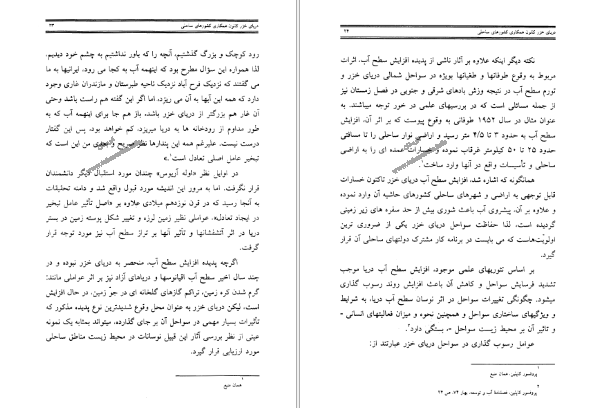 دریای خزر کانون همکاری کشورهای ساحلی
۲۴
نکته دیگر اینکه علاوه بر آثار ناشی از پدیده افزایش سطح آب، اثرات
مربوط به وقوع طوفانها و طغیانها بویژه در سواحل شمالی دریای خزر و
تورم سطح آب در نتیجه وزش بادهای شرقی و جنوبی در فصل زمستان نیز
از جمله مسائلی است که در بررسیهای علمی مورد توجه میباشند. به
عنوان مثال در سال ۱۹۵۲ طوفانی به وقوع پیوست که بر اثر آن، افزایش
سطح آب به حدود ۳ تا ۴/۵ متر رسید و اراضی نوار ساحلی را تا مسافتی
حدود ۲۵ تا ۵۰ کیلومتر غرقاب نموده و خسارات عمده ای را به اراضی
ساحلی و تأسیسات واقع در آنها وارد ساخت.
همانگونه که اشاره شد، افزایش سطح آب دریای خزر تاکنون خسارات
قابل توجهی به اراضی و شهرهای ساحلی کشورهای حاشیه آن وارد نموده
و علاوه بر آن، پیشروی آب باعث شوری بیش از حد سفره های زیر زمینی
گردیده است، لذا حفاظت سواحل دریای خزر یکی از ضروری ترین
اولویتهاست که می بایست در برنامه کار مشترک دولتهای ساحلی آن قرار
گیرد.
بر اساس تئوریهای علمی موجود، افزایش سطح آب دریا موجب
تشدید فرسایش سواحل و کاهش آن باعث افزایش روند رسوب گذاری
میشود. چگونگی تغییرات سواحل در اثر نوسان سطح آب دریا، به شرایط
و ویژگیهای ساختاری سواحل و همچنین نحوه و میزان فعالیتهای انسانی -
و تاثیر آن بر محیط زیست سواحل -، بستگی دارد.
عوامل رسوب گذاری در سواحل دریای خزر عبارتند از:
۱
پروفسور کاپلین، همان منبع
۲
پروفسور کاپلین، فصلنامهٔ آب و توسعه، بهار ۷۴، ص ۲۴
دریای خزر کانون همکاری کشورهای ساحلی
۲۳
رود کوچک و بزرگ گذشتیم، آنچه را که باور نداشتیم به چشم خود دیدیم.
لذا همواره این سؤال مطرح بود که اینهمه آب به کجا می رود، ایرانیها به ما
می گفتند که نزدیک فرح آباد نزدیک ناحیه طبرستان و مازندران غاری وجود
دارد که همه این آبها به آن می ریزد، اما اگر این گفته هم راست باشد وحتی
آن غار هم بزرگتر از دریای خزر باشد، باز هم جا برای اینهمه آب که به
طور مداوم از رودخانه ها به دریا میریزد، کم خواهد بود، پس این گفتار
درست نیست. علیرغم همه این پندارها نظر صریح و بعدی من این است که
تبخیر عامل اصلی تعادل است.»
در اوایل نظر «اوله آریوس» چندان مورد استقبال دیگر دانشمندان
قرار نگرفت. اما به مرور این اندیشه مورد قبول واقع شد و دامنه تحقیقات
به آنجا رسید که در قرن نوزدهم میلادی علاوه بر «اصل تأثیر عامل تبخیر
در ایجاد تعادل»، عواملی نظیر زمین لرزه و تغییر شکل پوسته زمین در بستر
دریا در اثر آتشفشانها و تأثیر آنها بر تراز سطح آب نیز مورد توجه قرار
گرفت.
اگرچه پدیده افزایش سطح آب، منحصر به دریای خزر نبوده و در
چند سال اخیر سطح آب اقیانوسها و دریاهای آزاد نیز بر اثر عواملی مانند:
گرم شدن کره زمین، تراکم گازهای گلخانه ای در جوّ زمین، در حال افزایش
است، لیکن دریای خزر به عنوان محل وقوع شدیدترین نوع پدیده مذکور که
تأثیرات بسیار مهمی در سواحل آن بر جای گذارده، میتواند بمثابه یک نمونه
عینی از نظر بررسی آثار این قبیل نوسانات در محیط زیست مناطق ساحلی
مورد ارزیابی قرار گیرد.
۱
همان منبع